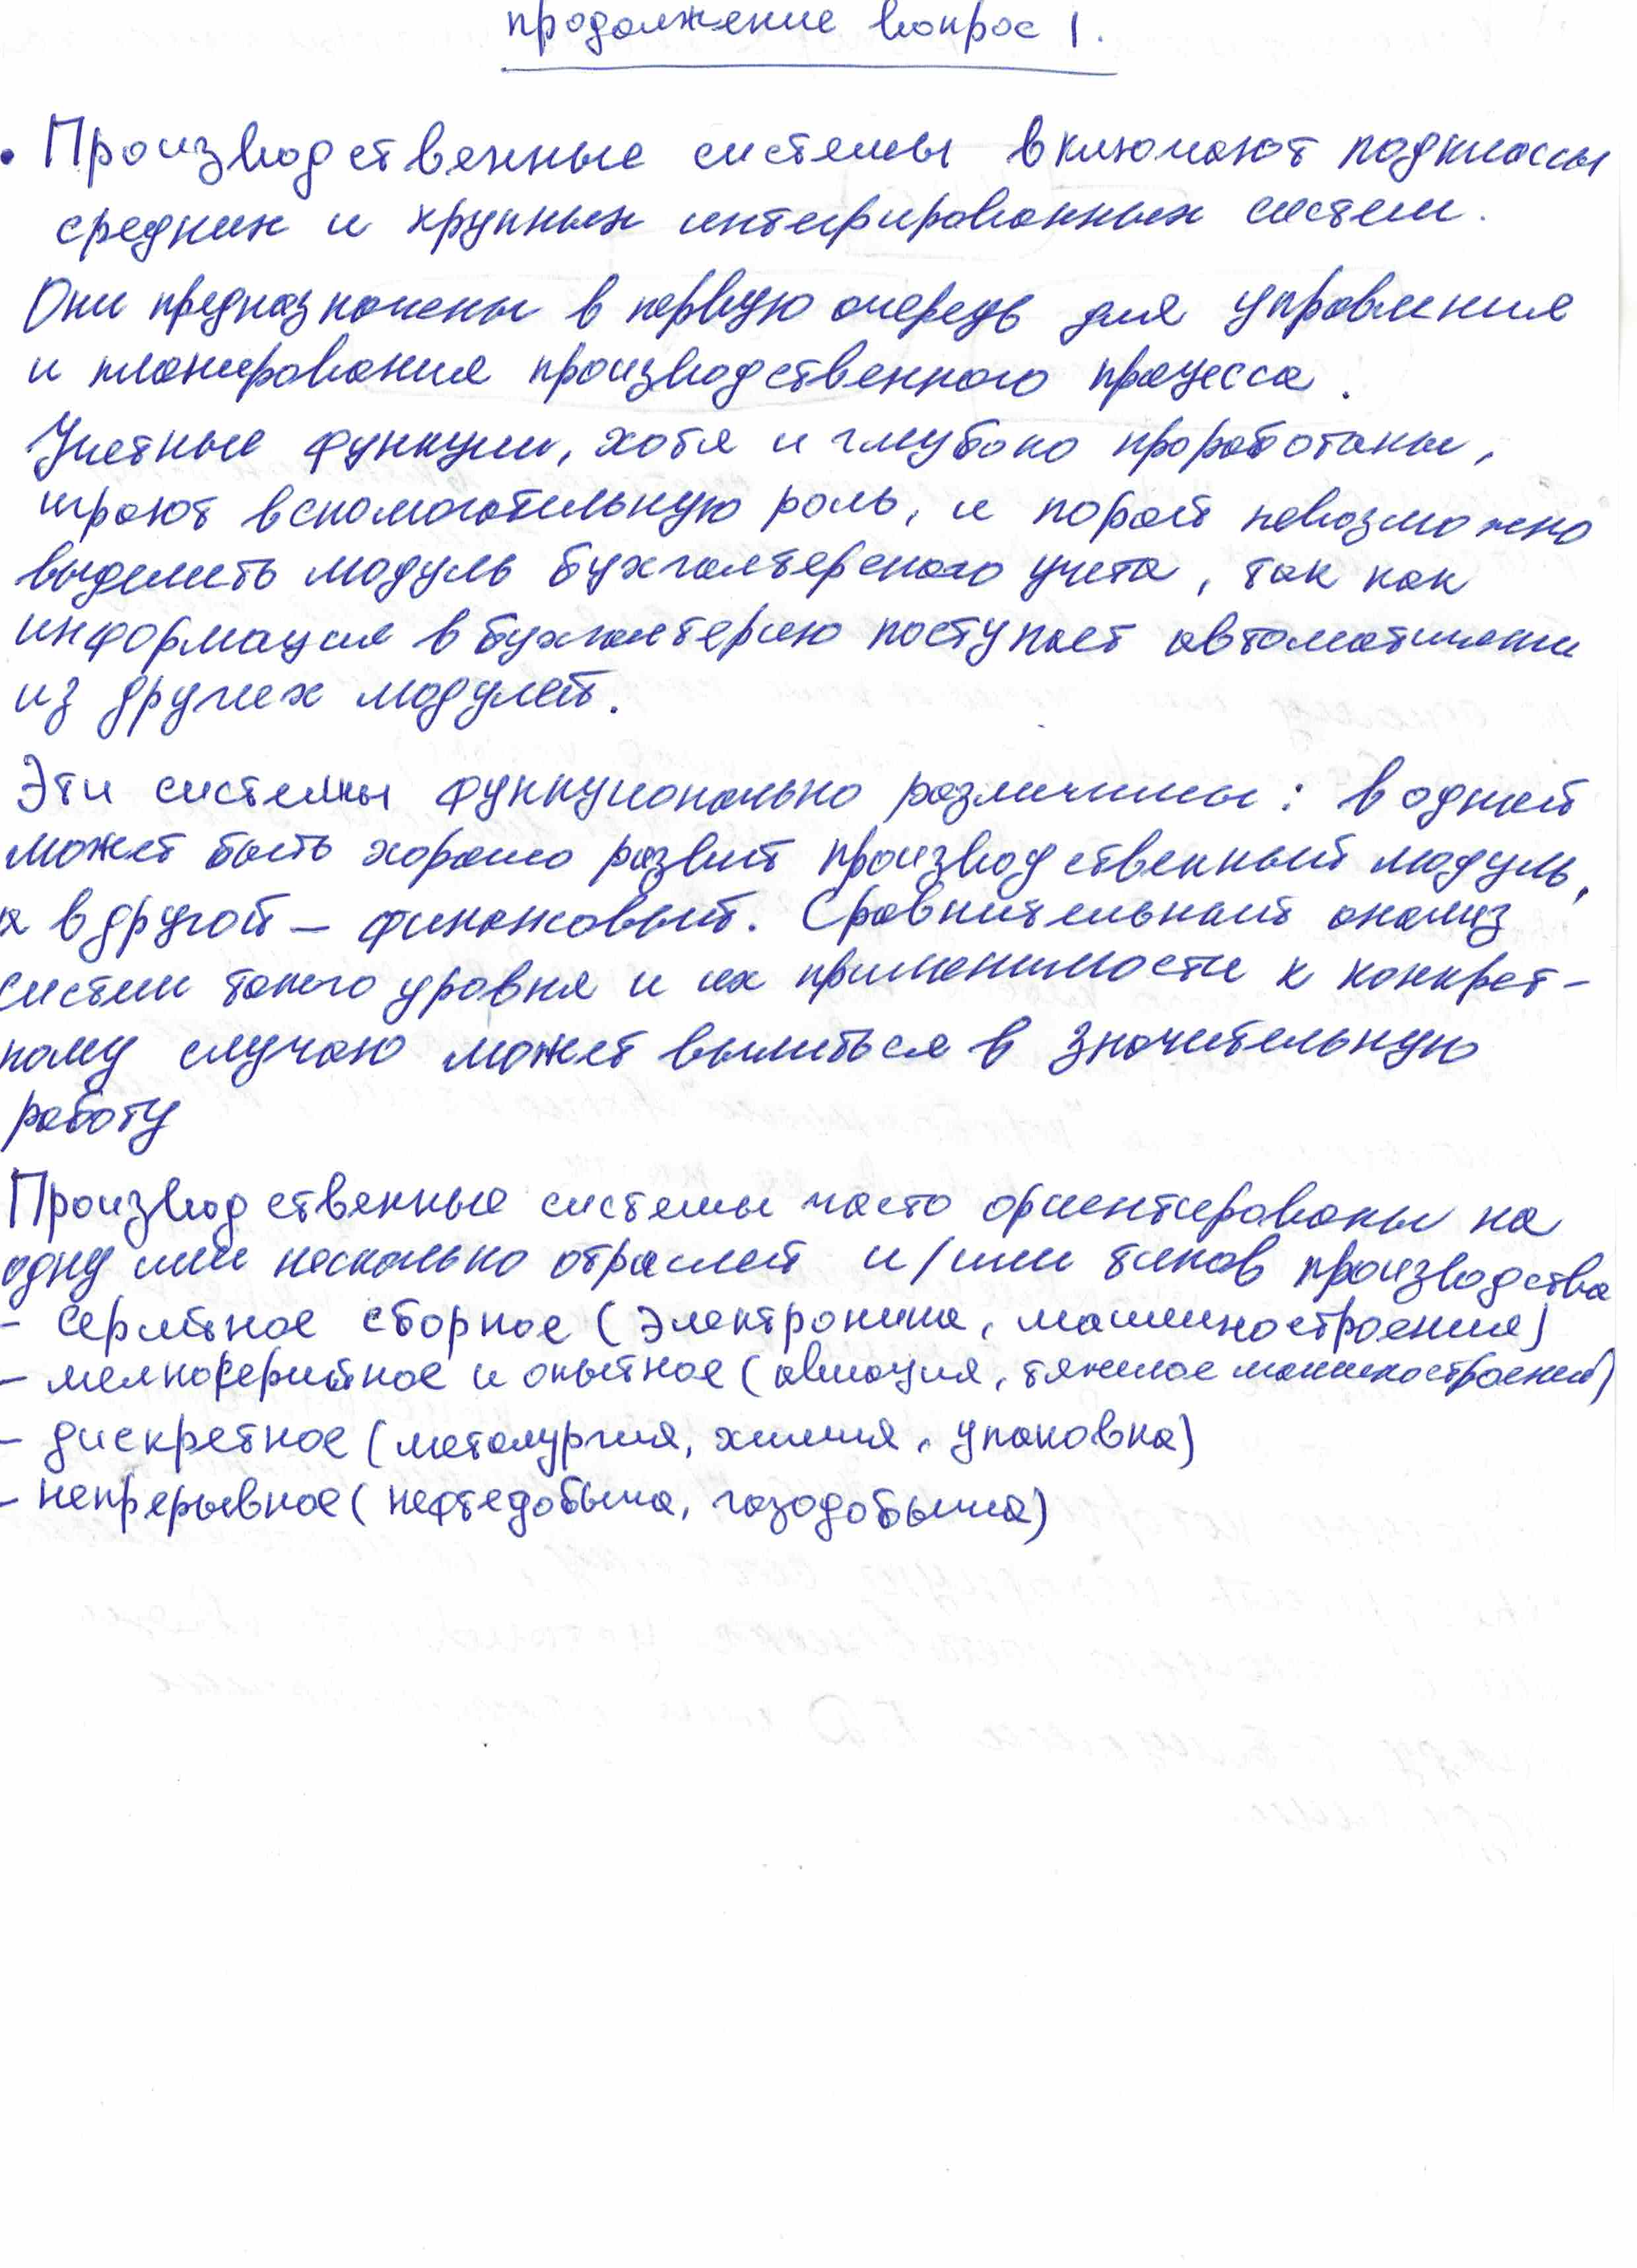 продолжение вопрос 1.
• Производственные системы включают подклассы
средних и крупных интегрированных систем.
Они предназначены в первую очередь для управления
и планирования производственного процесса.
Учетные функции, хотя и глубоко проработаны,
играют вспомогательную роль, и порой невозможно
выделить модуль бухгалтерского учета, так как
информация в бухгалтерию поступает автоматически
из других модулей.
Эти системы функционально различимы: в одной
может быть хорошо развит производственный модуль,
а в другой – финансовый. Сравнительный анализ
систем такого уровня и их применимости к конкрет-
ному случаю может вылиться в значительную
работу
Производственные системы часто ориентированы на
одну или несколько отраслей и/или типов производства
- серийное сборное (электроника, машиностроение)
- мелкосерийное и опытное (авиация, тяжелое машиностроение)
- дискретное (металургия, химия, упаковка)
- непрерывное (нефтедобыча, газодобыча)